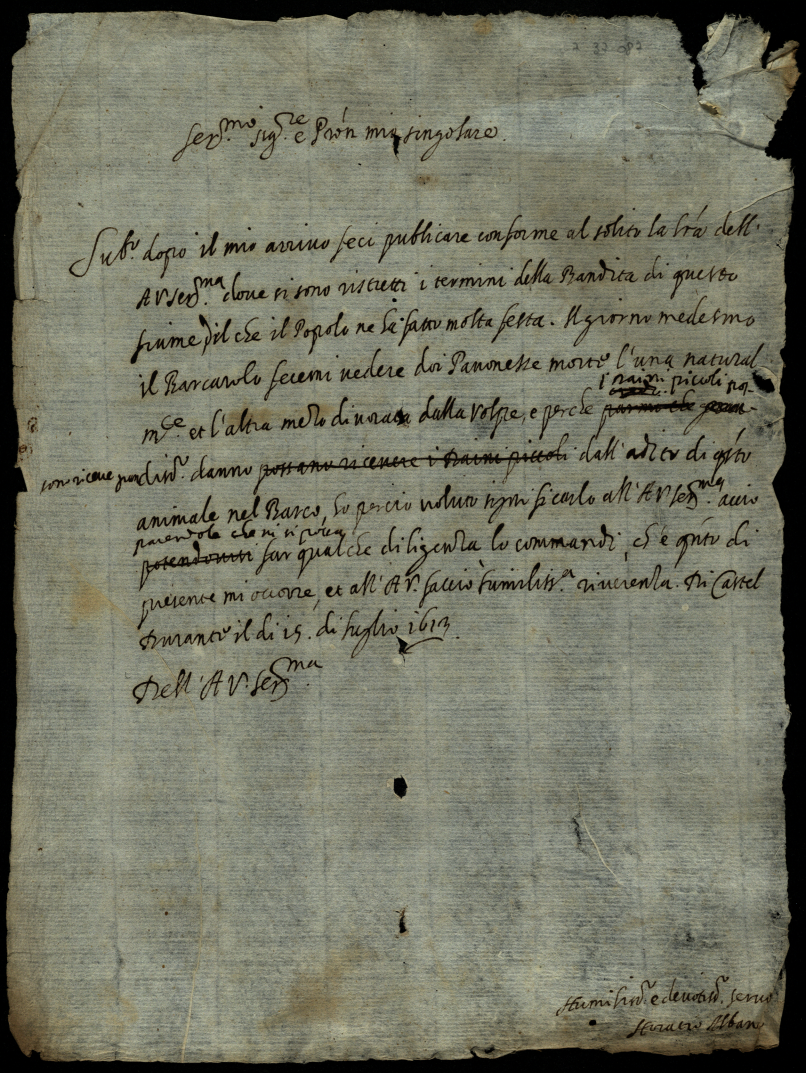 Ser.mo Sig.re e Pron mio singolare
Sub.o dopo il mio arrivo feci publicare conforme al solito la lra dell'
A V Ser.ma dove si sono ristretti i termini della Bandita di questo
fiume, il che il Popolo ne ha fatto molta festa. Il giorno medesmo
il Barcarolo fecemi vedere doi Pavonesse morte l'una natural
i Daini piccoli pos-
m.e et l'altra mezo divorata dalla Volpe, e perche
sono ricevere gran.diss.o danno possano ricevere i Daini piccoli dall' adito di q.sto
animale nel Barco, ho percio voluto significarlo all' A V Ser.ma accio
parendole che vi si possa
potendovisi far qualche diligenza lo commandi, ch'è q.nto di
presente mi occorre, et all' A V. faccio humiliss.a riverenza. Di Castel
Durante il di 15. di luglio 1613.
Dell' A V. Ser.ma
Humiliss.o e devotiss.o servo
Horatio Albani